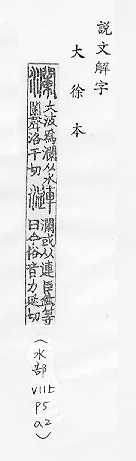 說文解字
大徐本
瀾 大波爲瀾从水
闌聲洛干切
漣 瀾或从連臣鉉等
曰今俗音力延切
(水部
P5
a2)